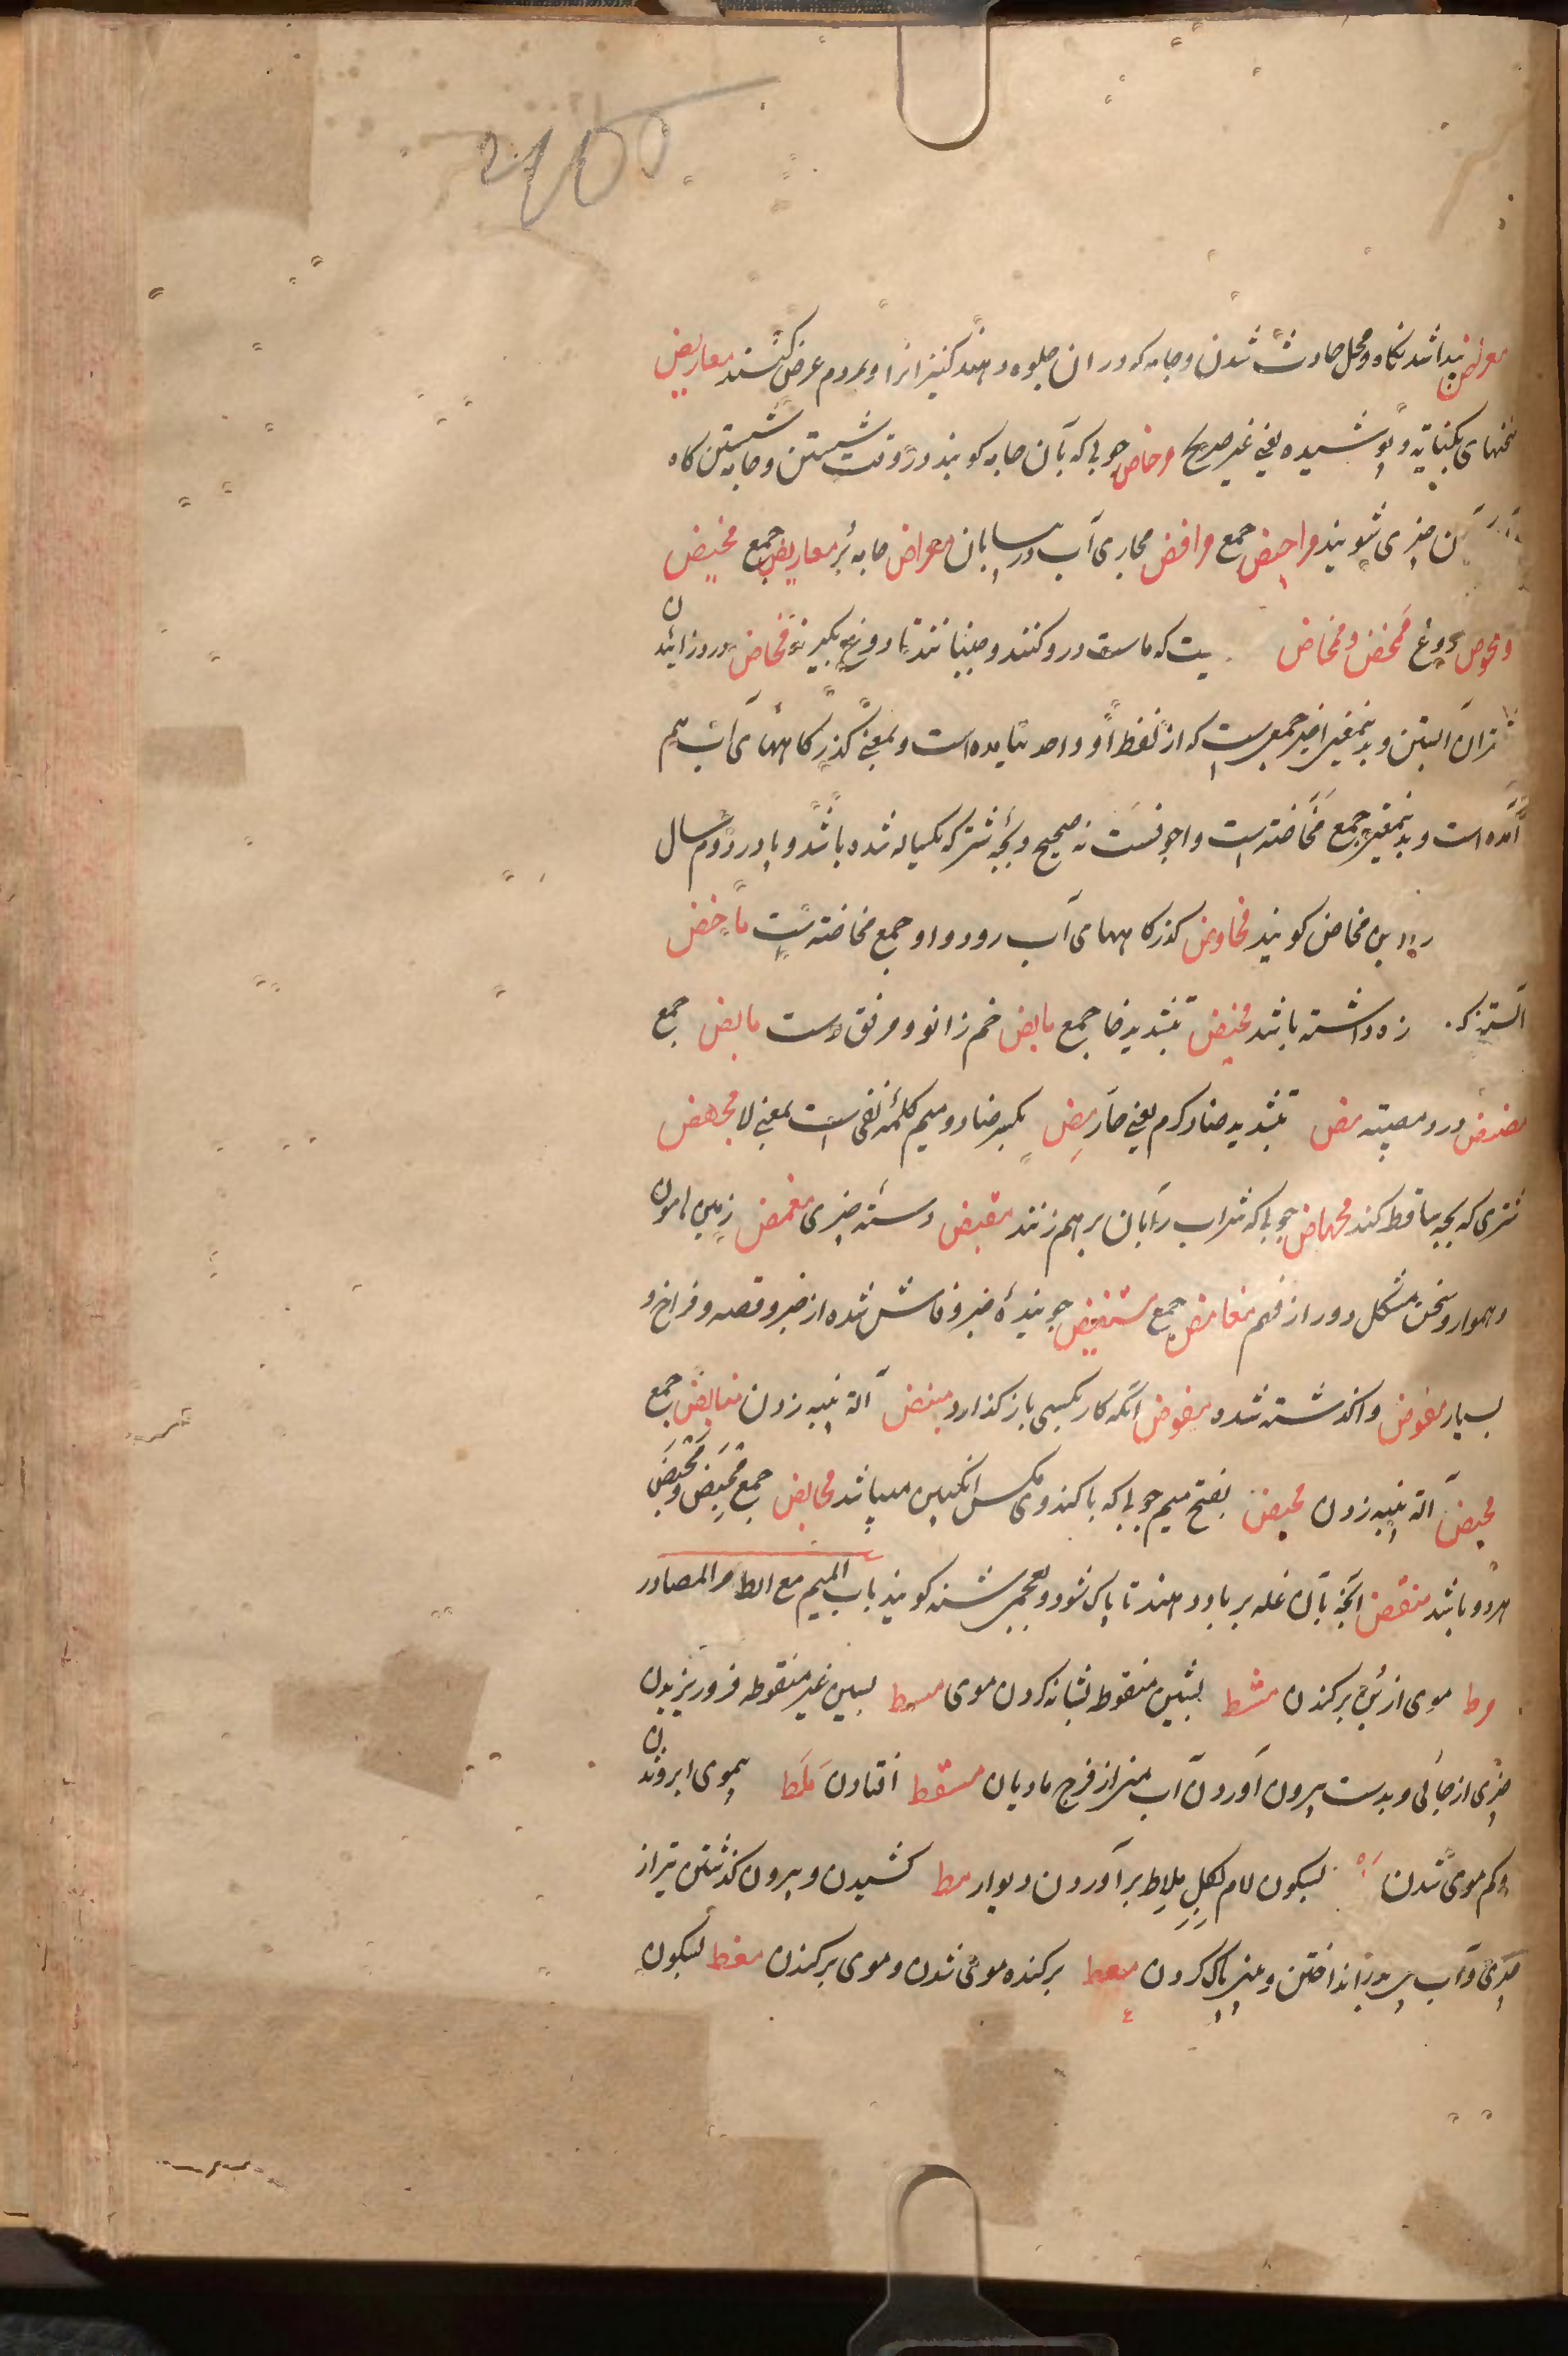 معرض پیدا شدنگاه و محل حادث شدن و جامه که در ان جلوه دهند کنیزانرا و بمردم عرض کنند معاریض
سخنهای بکنایه و پوشیده یعنی غیر صریح مرحاض چوبی که بآن جامه کوبند در وقت شستن و جامه شستن کاه
ن چیزی شویند مراحیض جمع مرافض مجاری آب در بیابان معراض جامه معاریض جمع مخیض
و مخوض دوغ ممخض و مخاض یست که ماست درو کنند و جنبانند تا دوغ بکیرند مخاض درد زائیدن
آبستن و بدینمعنی اخیر جمعیست که از لفظ او واحد نیامده است و بمعنی کذرکاههای آب هم
آمده است و بدینمعنی جمع مخاضه است و اجوفست نه صحیح و بچه شتر که یکساله شده باشد و پا در دوم سال
ابن مخاض کویند مخاوض کذرکاههای آب رود و او جمع مخاضه است ماخض
آبستنی که زه داشته باشد مخیض بتشدید خا جمع مابض خم زانو و مرفق دست مابض جمع
مضض درد مصیبة مض بتشدید ضاد کرم یعنی حار مض بکسر ضاد و میم کلمهٔ نفی است بمعنی لا مجهض
شتری که بچه ساقط کند مخماض چوبی که شراب را بان بر هم زنند مقبض دستهٔ چیزی مغمض زمین هامون
و هموار و سخن مشکل دور از فهم مغامض جمع مستفیض جویندهٔ خبر و فاش شده از خبر و قصه و فراخ و
بسیار مفوض واکذاشته شده مفوض آنکه کار بکسی باز کذارد منبض آلة پنبه زدن منابض جمع
محبض آلة پنبه زدن محبض بفتح میم چوبی که با کندوی مکس انکبین میباشد محابض جمع محبض و محبض
هردو باشد منفض آنچه بآن غله بر باد دهند تا پاک شود و بعجمی شنه کویند باب المیم مع الطا م المصادر
مرط موی از بن برکندن مشط بشین منقوط شانه کردن موی مسط بسین غیر منقوطه فرو ریزیدن
چیزی از جائی و بدست بیرون آوردن آب منی از فرج مادیان مسقط افتادن ملط بیموی ابرو شدن
و کم موی شدن بسکون لام بکل ملاط برآوردن دیوار مط کشیدن و بیرون کذشتن تیر از
چیزی و آب بینی انداختن و بینی پاک کردن معط برکنده موی شدن و موی برکندن مغط بسکون